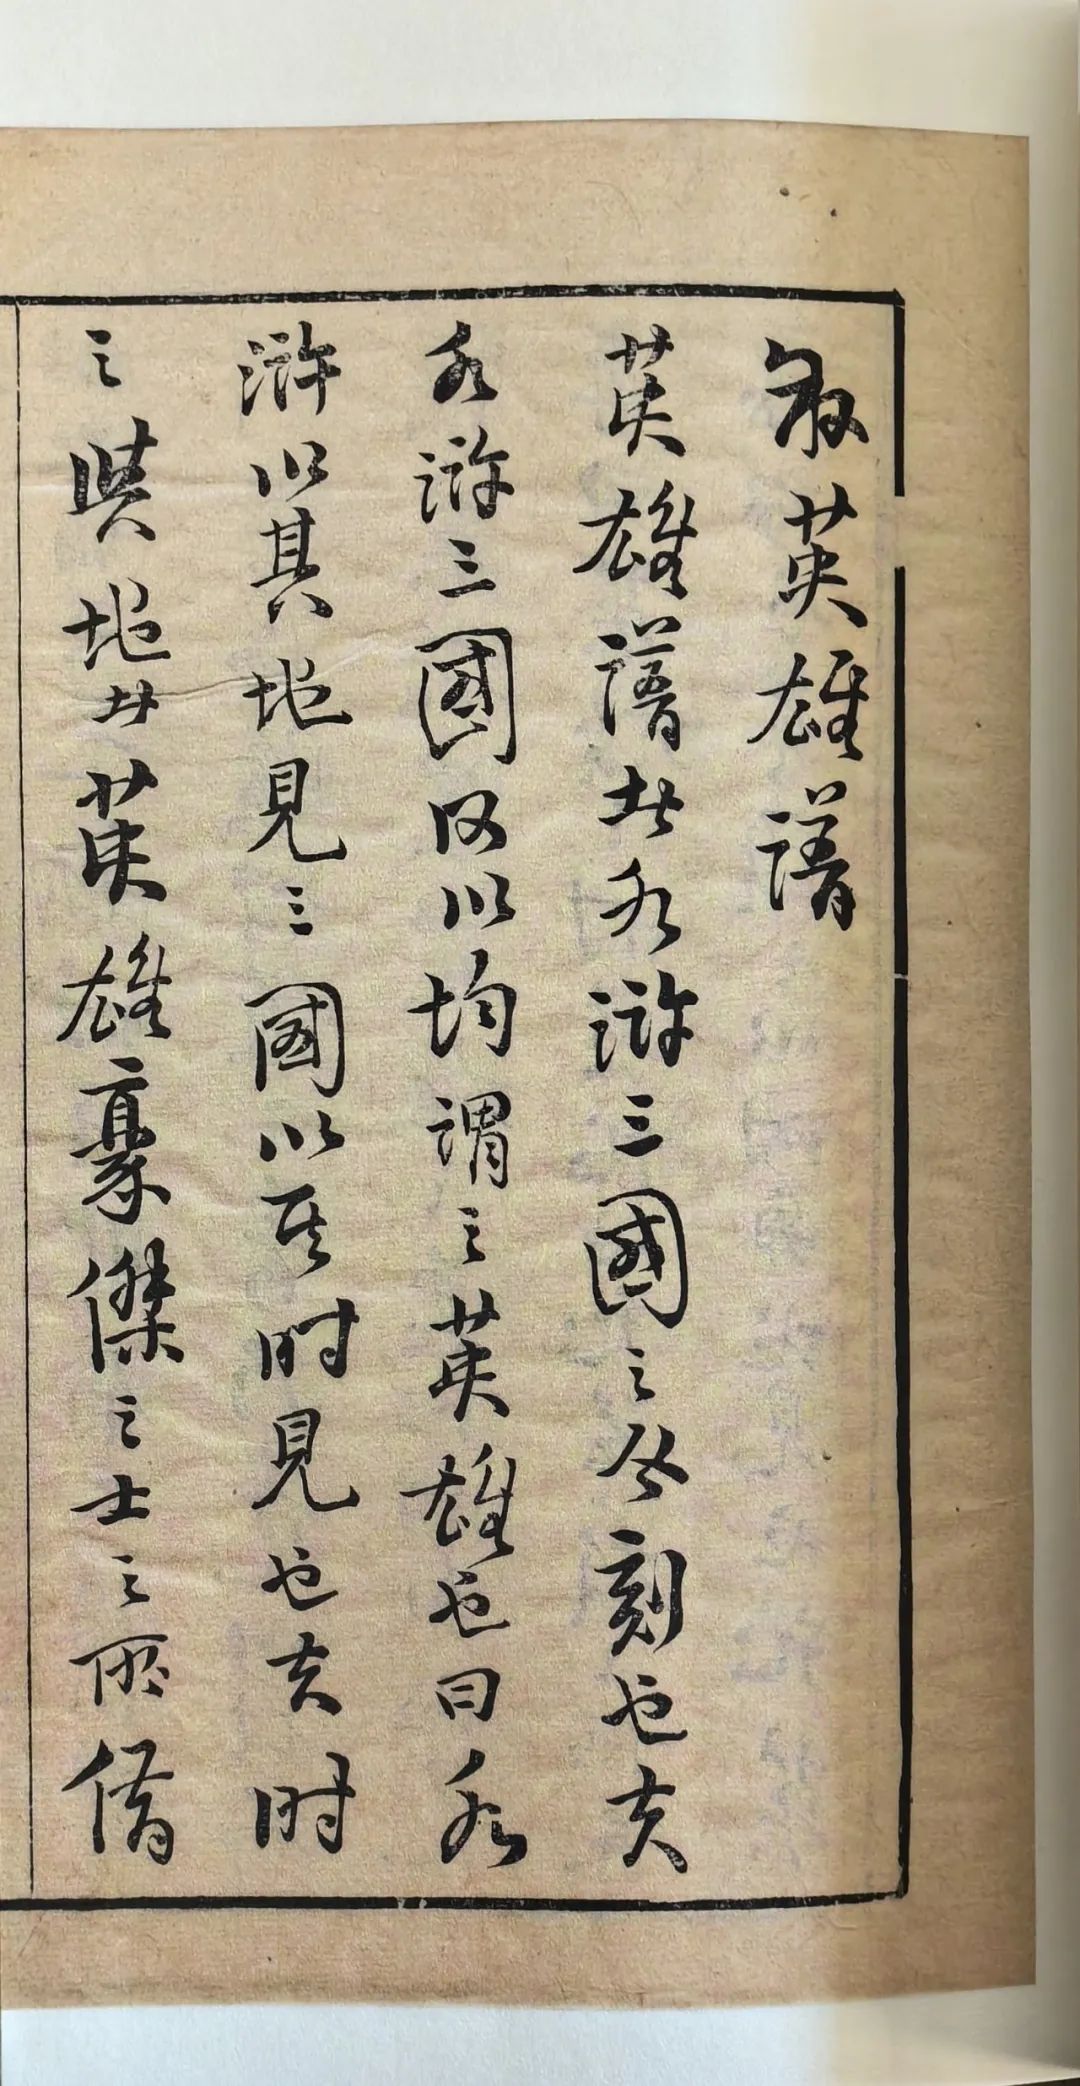 叙英雄譜
英雄譜者水滸三國之合刻也夫
水滸三國何以均謂之英雄也曰水
滸以其地見三國以其时見也夫时
之與地者英雄豪傑之士之所借